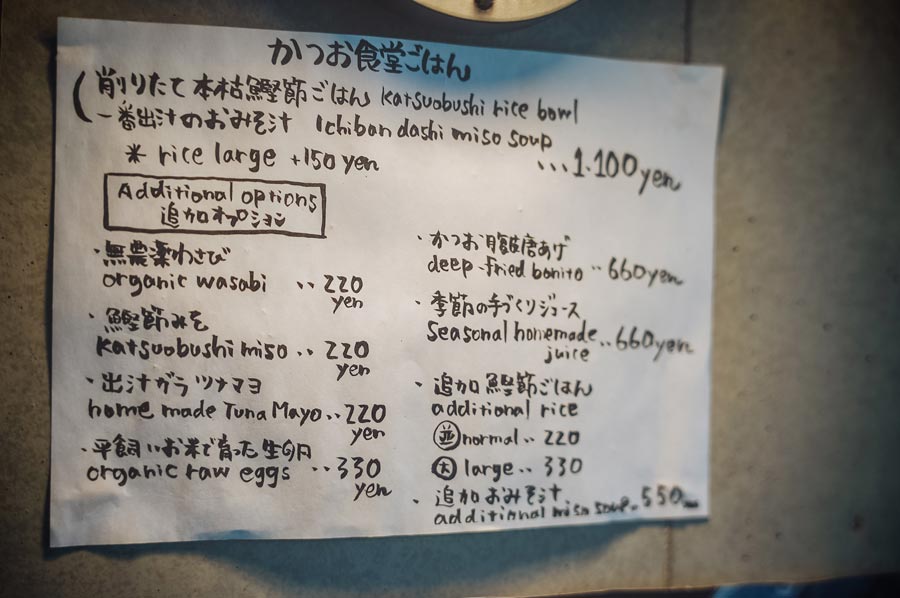 かつお食堂ごはん
削りたて本枯鰹節ごはん katsuobushi rice bowl
一番出汁のおみそ汁 Ichiban dashi miso soup
* rice large +150 yen
...1.100yen
Additional options
追加オプション
・無農薬わさび
organic wasabi ‥220
yen
・鰹節みそ
katsuobushi miso‥220
yen
・出汁ガラツナマヨ
home made Tuna Mayo‥220
yen
・平飼いお米で育った生卵
organic raw eggs ‥330
yen
・かつお腹皮唐あげ
deep-fried bonito‥660yen
・季節の手づくりジュース
Seasonal homemade
juice‥660yen
・追加鰹節ごはん
additional rice
並normal‥220
大large‥330
・追加おみそ汁
additional miso soup‥550